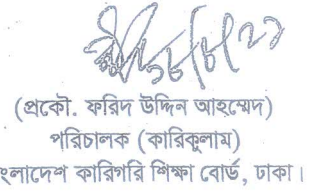 (প্রকৌ. ফরিদ উদ্দিন আহম্মেদ)
পরিচালক (কারিকুলাম)
ংলাদেশ কারিগরি শিক্ষা বোর্ড, ঢাকা।